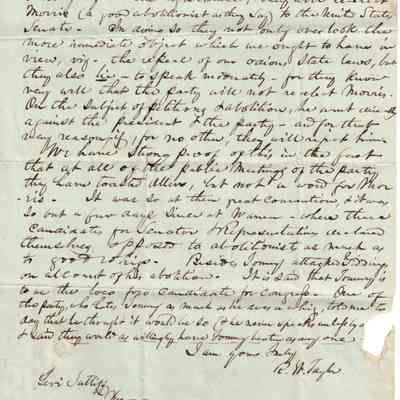 Morris (a good abolitionist as they say) to the United States
Senate - In doing so they not only overlook the
more immediate object which we ought to have in
view, viz - the repeal of our odious State laws, but
they also lie - to speak moderately - for they know
very well that the party will not re elect Morris -
On the subject of petitions & abolitions, he went directly
against the president & the party - and for that
very reason, if for no other, they will reject him
We have strong proof of this in the fact
that at all of the public Meetings of the party
they have toasted Allen, but not a word for Mor
ris - It was so at their great Convention, & it was
so but a few days since at Warren - where their
Candidates for Senator & Representative declared
themselves opposed to abolitionists as much as
to good whigs - Besides Tommy attacked Giddings
on account of his abolition - It is said that Tommy is
to be the loco foco candidate for Congress - One of
the party, who hates Tommy as much as he does a whig, told me to
day that he thought it would be so
& said they would as willingly have Tommy beaten as any one
I am yours truly
R. W. Tayler
Levi Sutliff